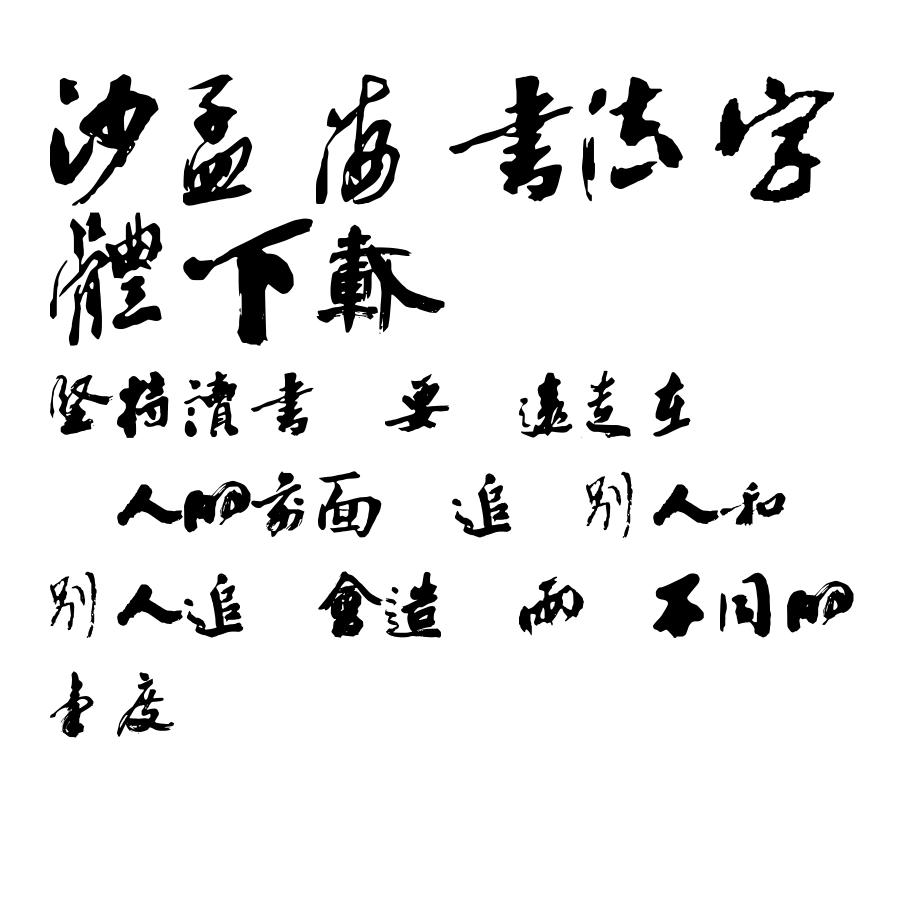 沙孟 海 書法 字
體 下載
堅持讀書 要 遠走在
人的前面 追 别人和
别人追 會造 兩 不同的
度